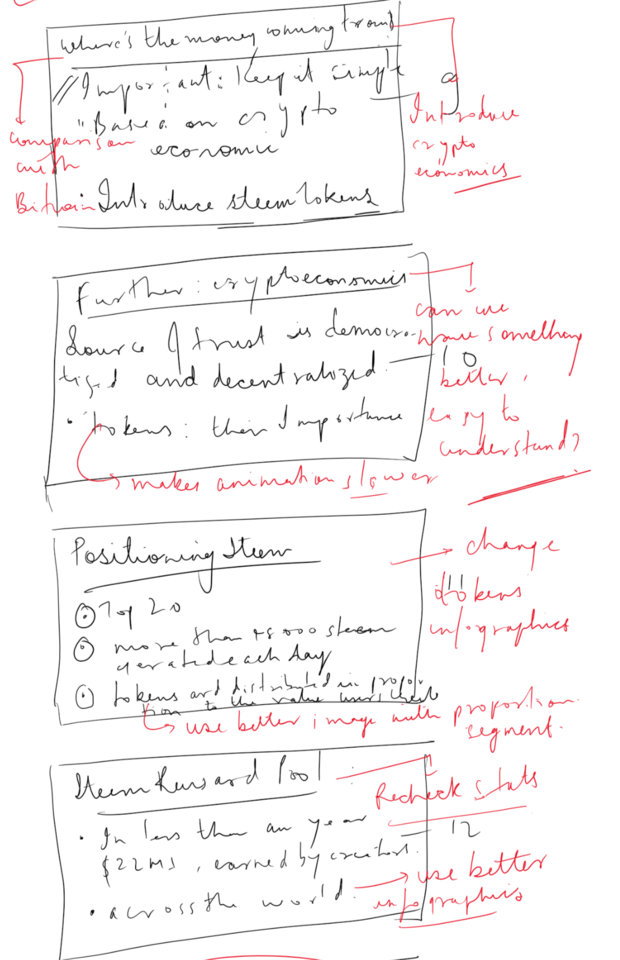 where's the money coming from
// Important: Keep it simple
"Based on crypto
economic
Introduce steem tokens
comparison
with
Bitcoin
9
Introduce
crypto
economics
Further: cryptoeconomics
Source of trust is democra-
tized and decentralized
• tokens: their Importance
makes animation slower
10
can we
have something
better,
easy to
understand?
Positioning Steem
Top 20
more than 45000 steem
each day
tokens are distributed in propor
tion to the value
use better image with proportion
segment.
change
11
tokens
infographics
Steem Reward Pool
• In less than an year
$22M$, earned by
• across the world
Recheck stats
12
use better
infographics